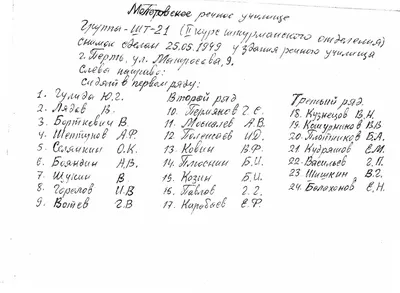 Молотовское речное училище
Группа - ШТ-21 (II курс штурманского отделения)
снимок сделан 25.05.1949 у здания речного училища
г. Пермь, ул.
Слева направо:
Сидят в первом ряду:
1. Гулида Ю.Г.
2. Лядов В.
3. Борткевич В.
4. Шептунов А.Ф.
5. О.К.
6. Бояндин А.В.
7. Щукин В.
8. Горелов И.В
9. Вотев Г.В
Второй ряд
10. Пермяков Г.Е.
11. А.В.
12. Полетаев И.Д.
13. Ковин В.Ф.
14. Плюснин Б.И.
15. Козин Б.И.
16. Павлов Г.Г.
17. Каробаев Е.Ф.
Третьий ряд.
18. Кузнецов В.Н.
19. Кошурников В.В
20. Плотников Б.А.
21. Кудряшов Е.М.
22. Васильев Г.П.
23. Шишкин В.Г.
24. Балахонов Е.Н.